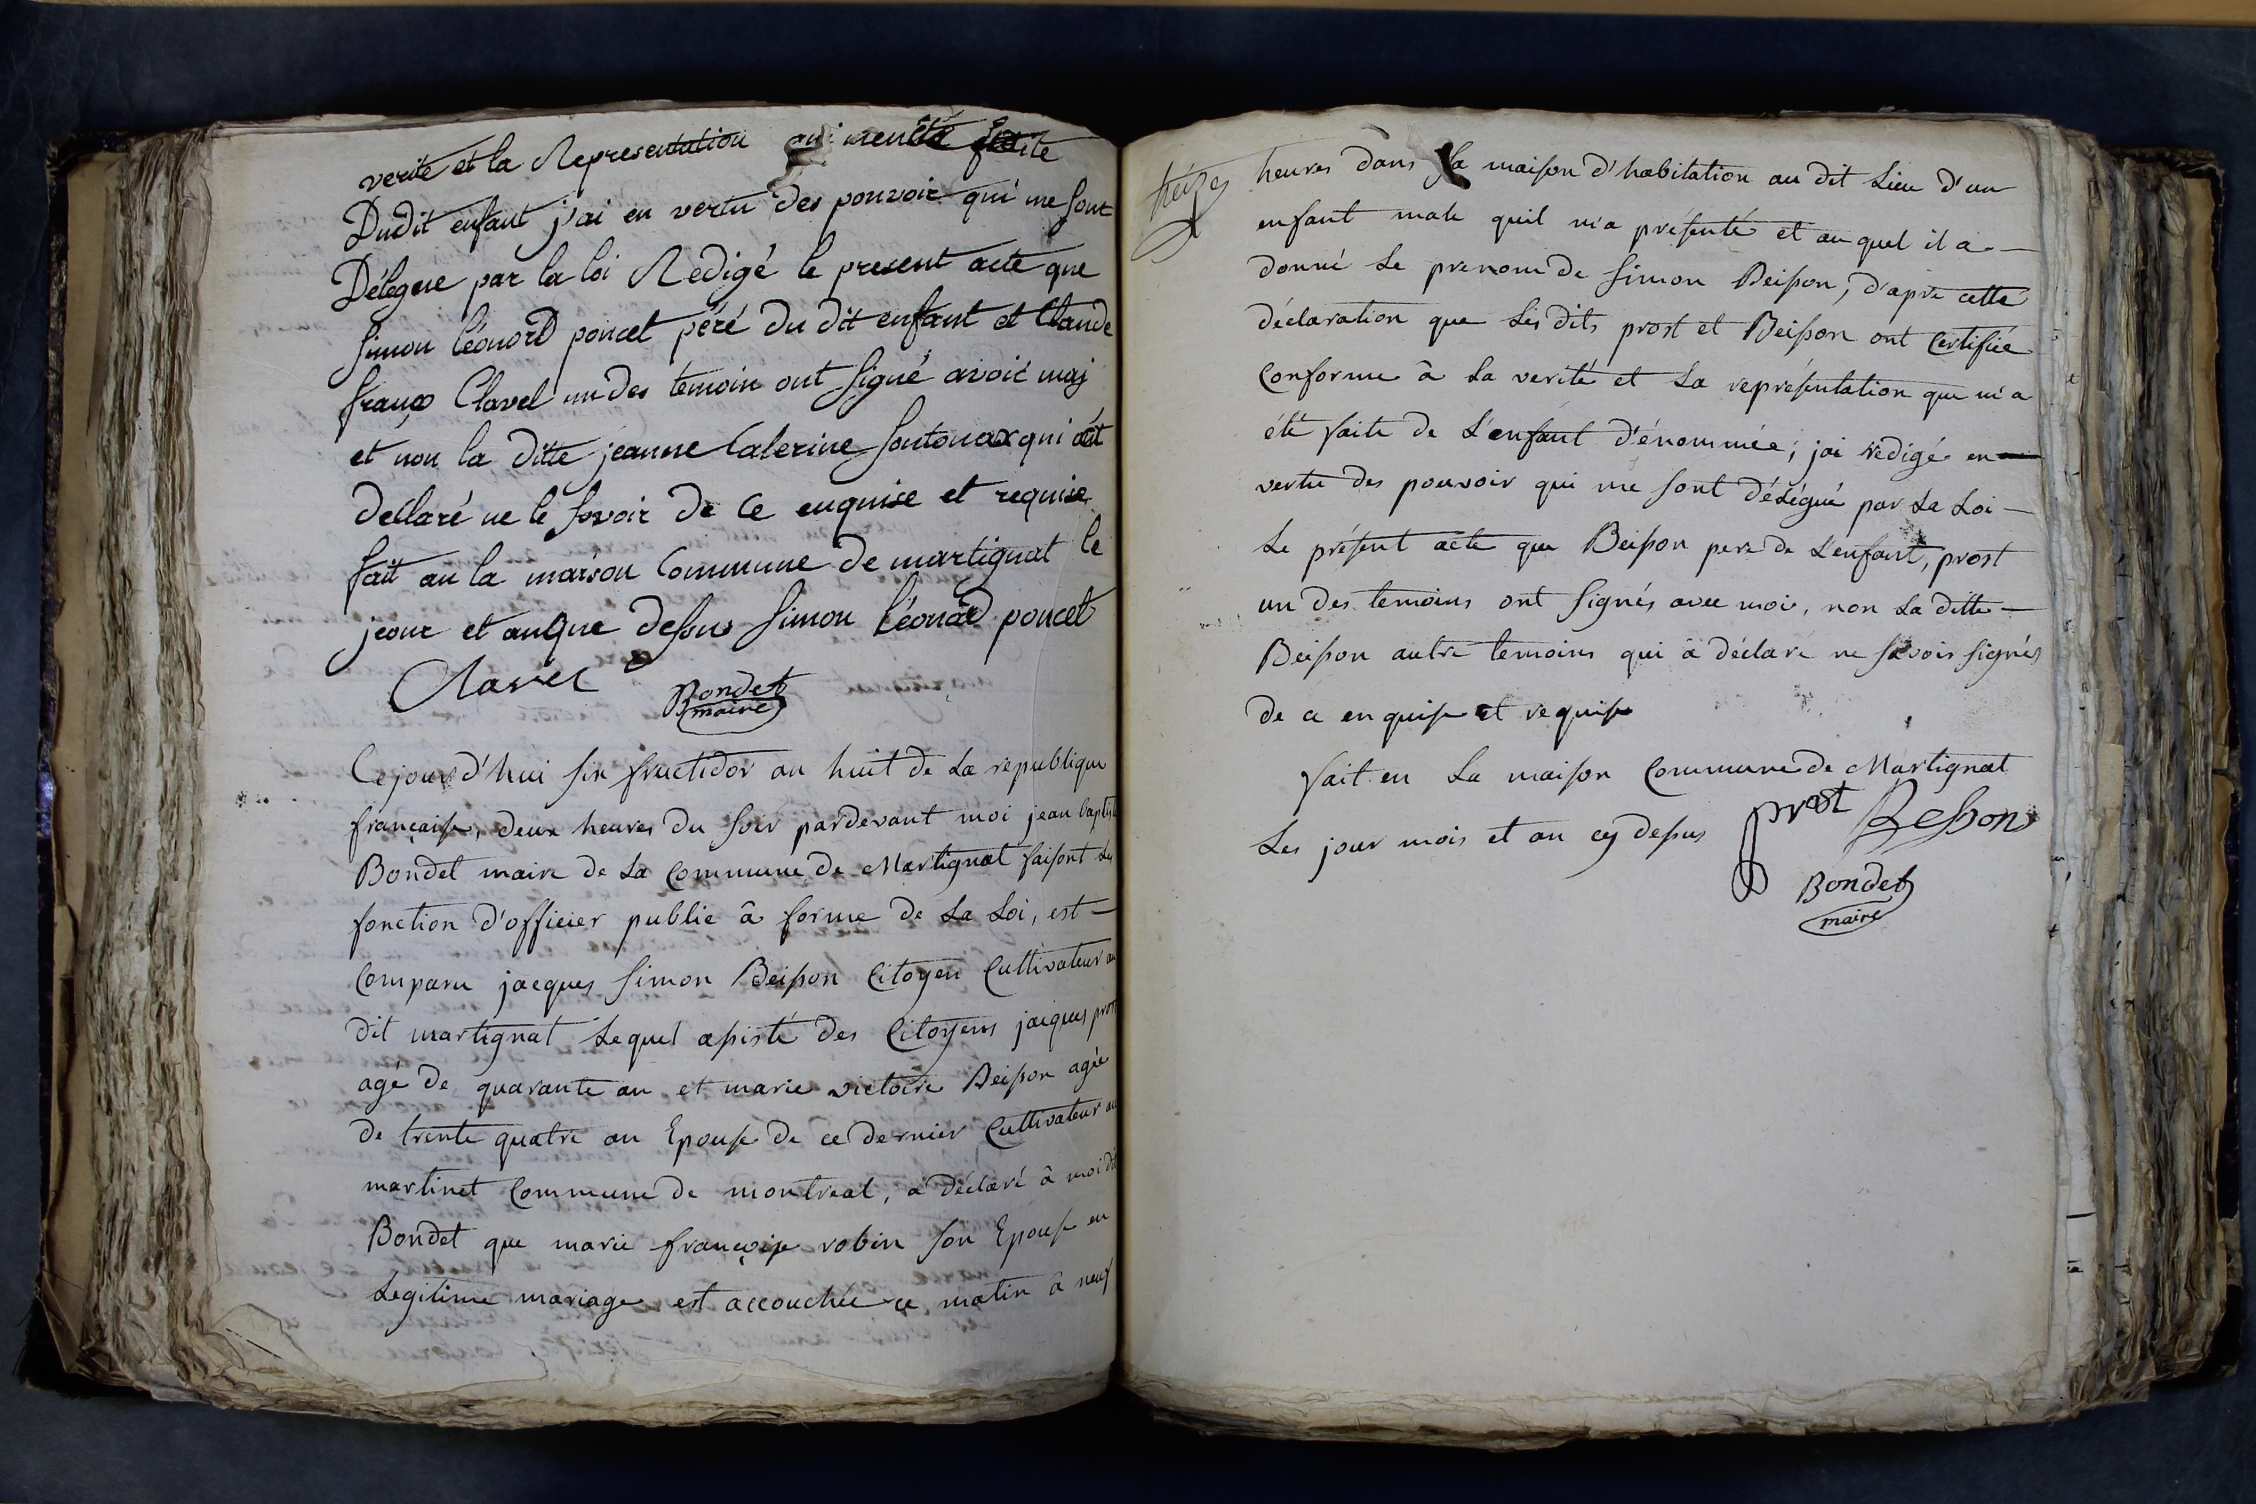 verite et la Representation qui men été faite
Dudit enfant j'ai en vertu des pouvoir qui me sont
Délegue par la loi Redigé le present acte que
simon léonord poncet péré du dit enfant et Claude
franço Clavel un des temoin ont signé avoic moj
et non la ditte jeanne Caterine sontonax qui at
déclaré ne le savoir de Ce enquise et requise
fait au la maison Commune de martignat le
jeour et anque desus simon léonard poncet
Clavel Bondet
maire
Cejourd'hui six fructidor an huit de La republique
française, deux heures du soir pardevant moi jean baptist
Bondet maire de La Commune de Martignat faisont Les
fonction d'officier public à forme de La Loi, est —
Comparu jacques simon Beisson Citoyen Cultivateur au
dit martignat Lequel assisté des Citoyens jacques prost
agé de quarante an et marie victoire Beisson agée
de trente quatre an Epouse de ce dernier Cultivateur au
martinet Commune de montreal, a déclaré à moi dit
Bondet que marie françoise robin son Epouse en
Legitime mariage est accouchée ce matin à neuf
treize
heures dans sa maison d'habitation au dit Lieu d'un
enfant male quil m'a présenté et au quel il a —
donné Le prenom de simon Beisson, d'apre cette
déclaration que Les dits prost et Beisson ont Certifiée
Conforme à La verité et La representation que m'a
été faite de L'enfant d'énommée; jai redigé en —
vertu des pouvoir qui me sont délégué par La Loi —
Le présent acte que Beisson pere de L'enfant, prost
un des temoins ont signés avec moi, non La ditte —
Beisson autre temoins qui à déclaré ne savoir signés
de ce en quise et requise
fait en La maison Commune de Martignat
Les jour mois et an cy dessus prost Besson
Bondet
maire